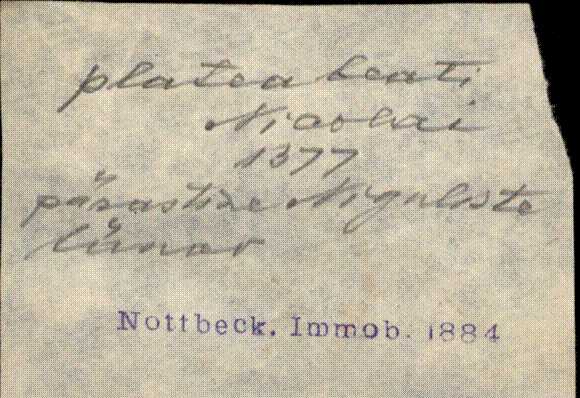 platea beati
Nicolai
1377
pärastine Niguliste
tänav
Nottbeck. Immob. 1884